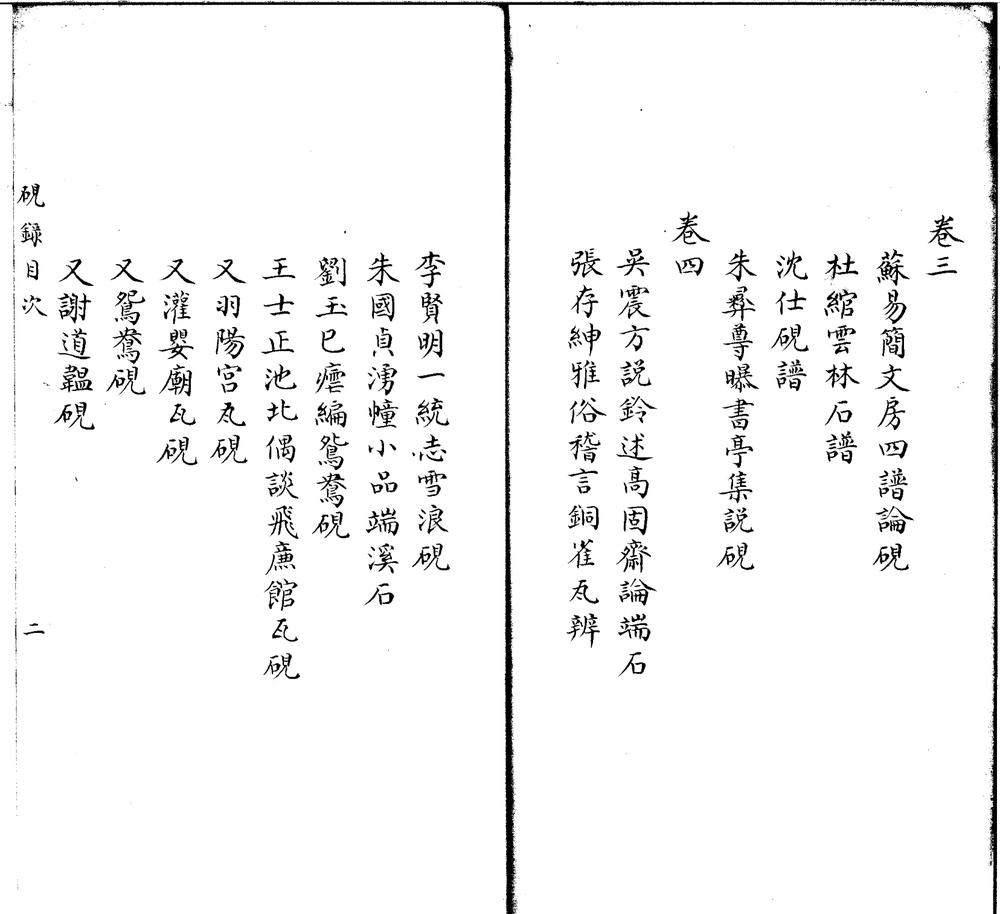 卷三
蘇易簡文房四譜論硯
杜綰雲林石譜
沈仕硯譜
朱彝尊曝書亭集説硯
卷四
吳震方説鈴述高固齋論端石
張存紳雅俗稽言銅雀瓦辨
李賢明一統志雪浪硯
朱國貞湧幢小品端溪石
劉玉巳瘧編鴛鴦硯
王士正池北偶談飛廉館瓦硯
又羽陽宮瓦硯
又灌嬰廟瓦硯
又鴛鴦硯
又謝道韞硯
硯録目次
二